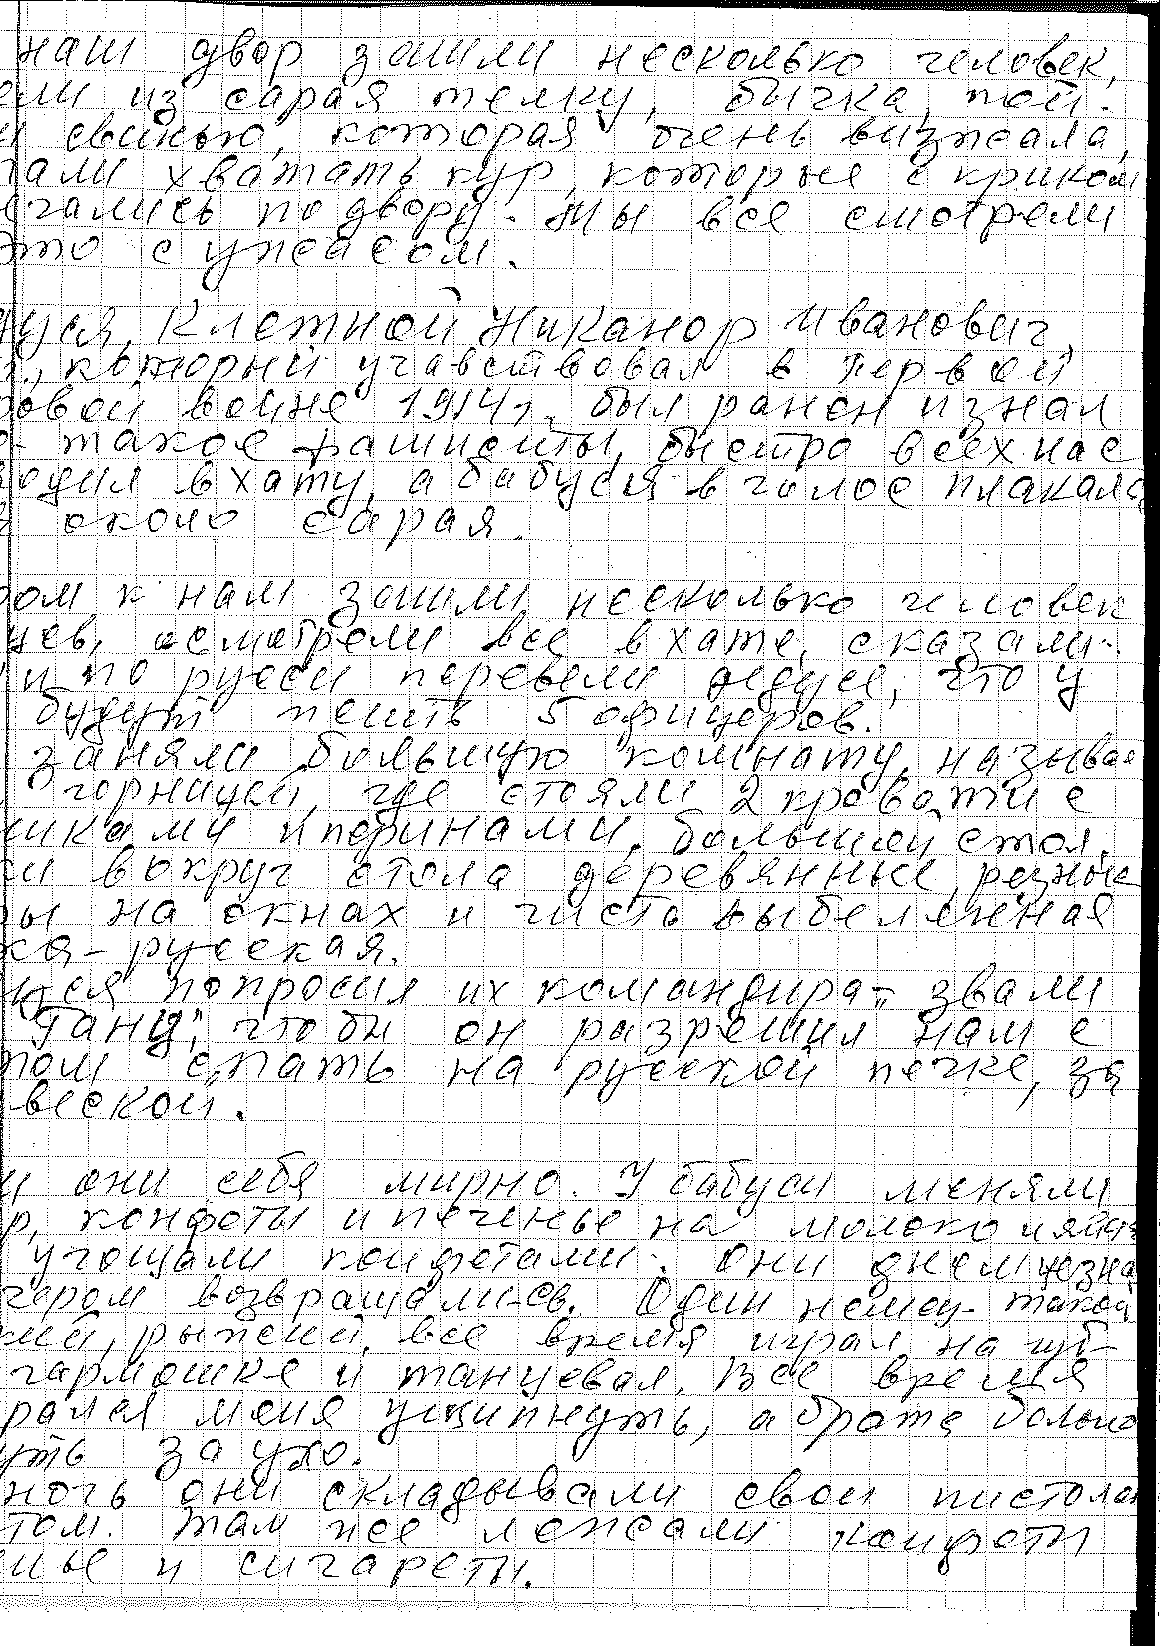 наш двор зашли несколько человек,
ели из сарая телку, бычка, пой-
и свинью, которая очень визжала,
чали хватать кур, которые с криком
егались по двору. Мы все смотрели
это с ужасом.
дуся, Клетной Никанор Иванович,
г., который учавствовал в Первой
ровой войне 1914г. был ранен и знал
о- такое фашисты, быстро всех нас
водил в хату, а бабуся в голос плакала
з около сарая.
ром к нам зашли несколько человек
цев, осмотрели все в хате, сказали-
и по русси перевели дедусе, что у
будут жить 5 офицеров.
заняли большую комнату, называе
горницей, где стояли 2 кровати с
шками и перинами, большой стол,
ки вокруг стола деревянные, резные
ры на окнах и чисто выбеленная
ка- русская.
дуся попросил их командира- звали
"Ганц", чтобы он разрешил нам с
том спать на русской печке, за
веской.
и они себя мирно. У бабуси меняли
р, конфеты и печенье на молоко и яйца
угощали конфетами. Они днем исчеза
чером возвращались. Один немец- такой
кий, рыжий, все время играл на губ-
гармошке и танцевал. Все время
рался меня ущипнуть, а брата больно
уть за ухо.
ночь они складывали свои пистолет
том. Там же лежали конфеты
енье и сигареты.